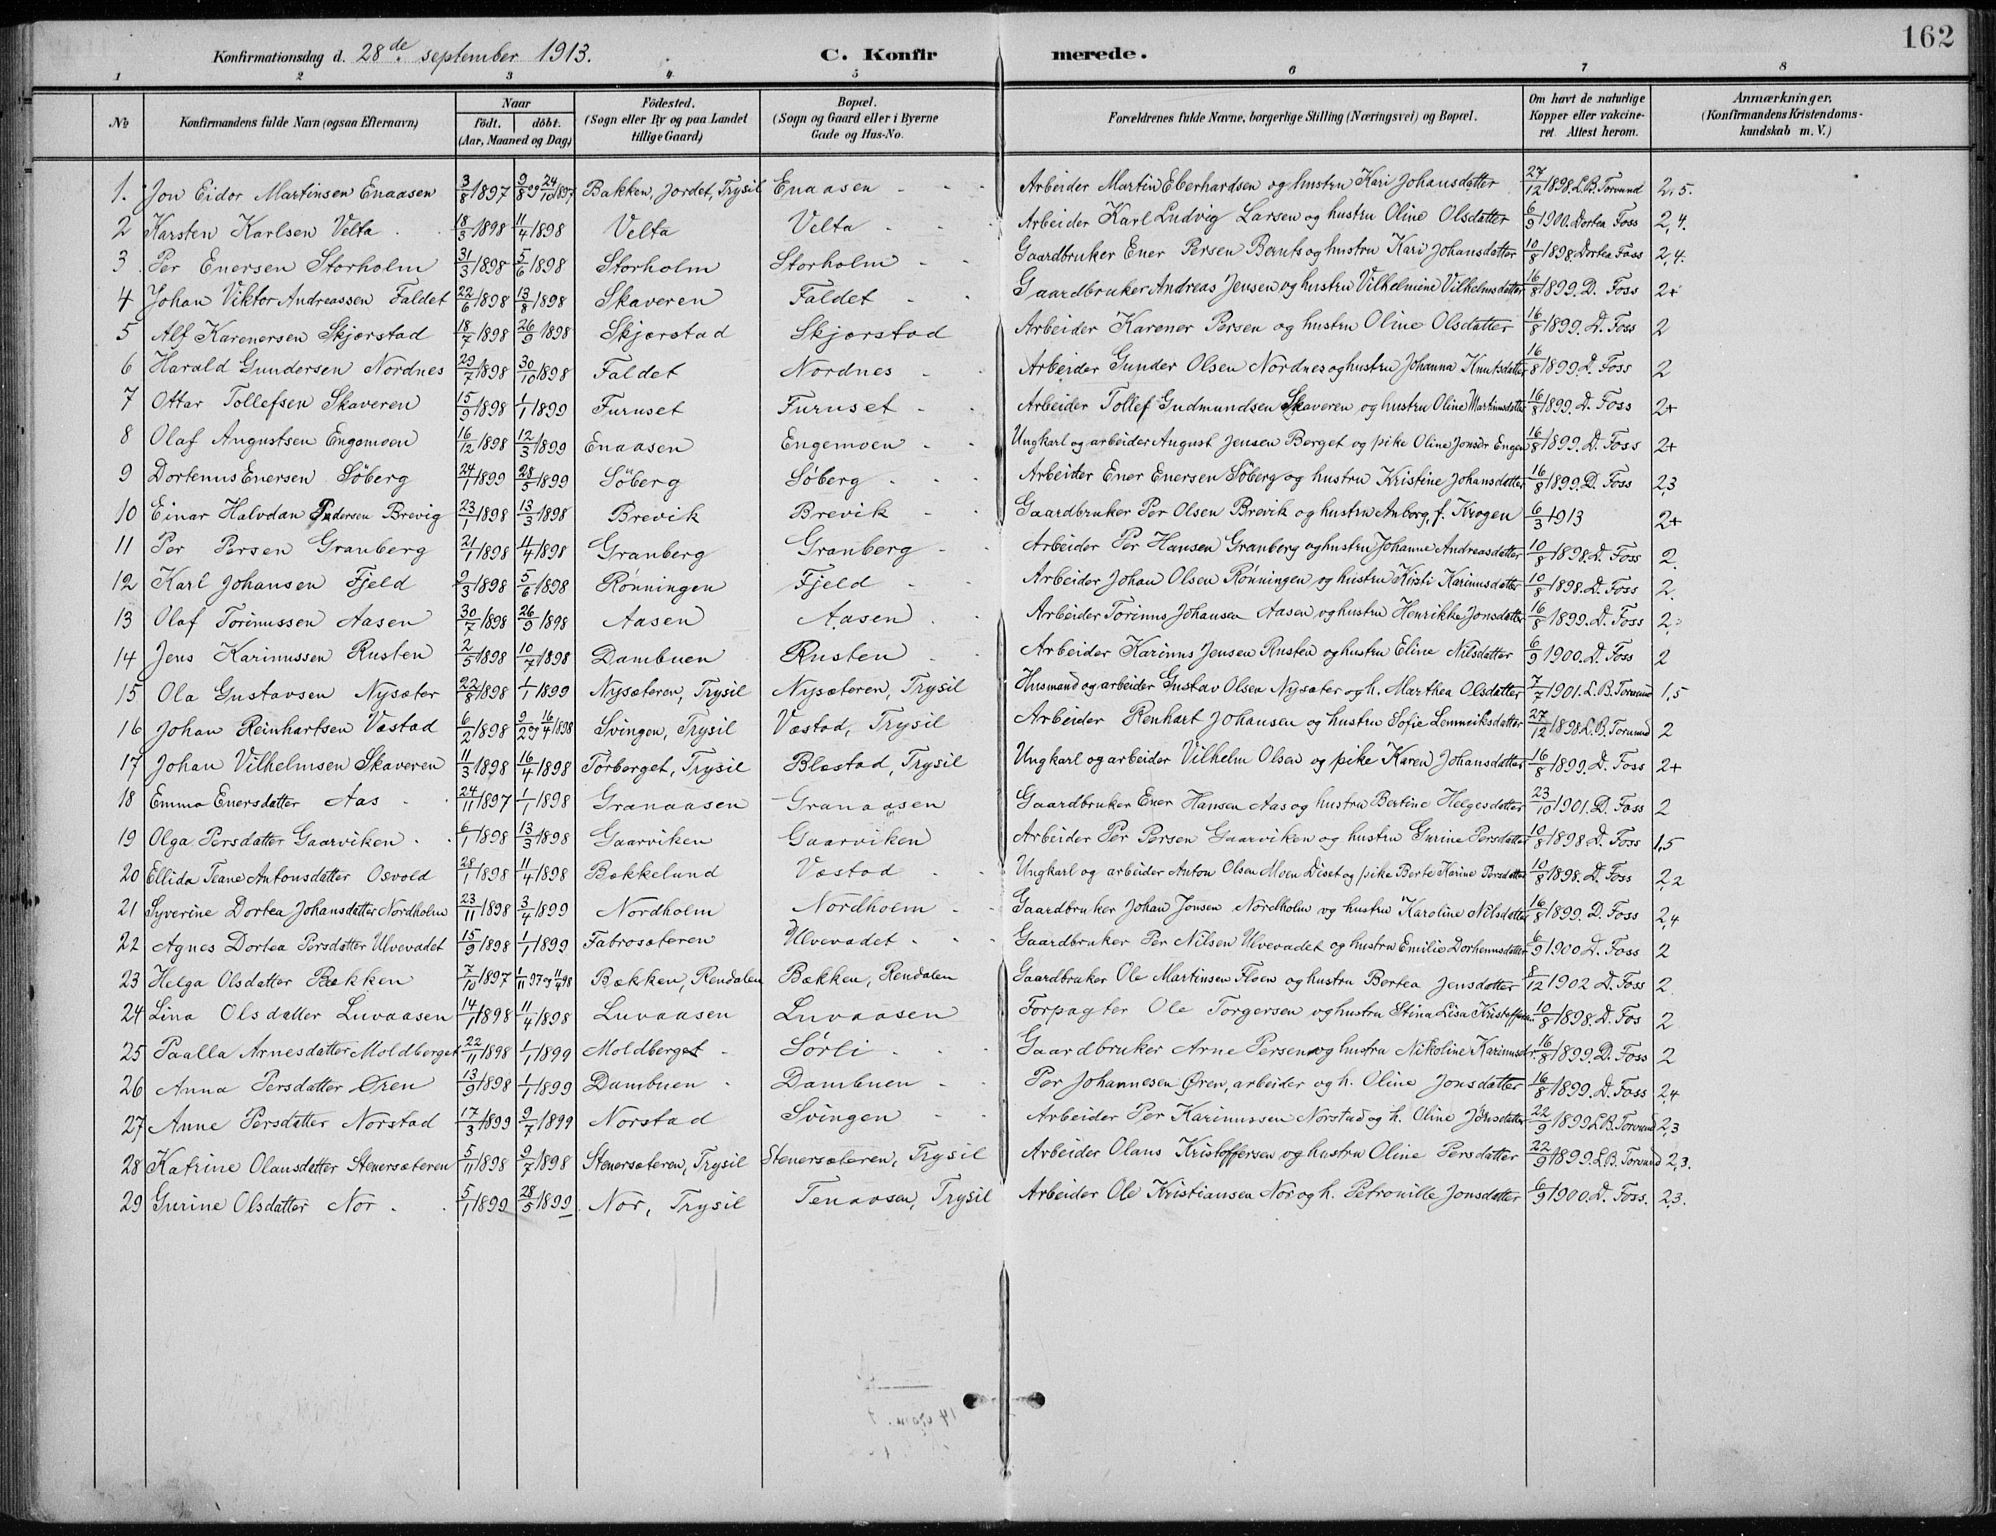 162
Konfirmationsdag d. 28de september 1913. C. Konfirmerede.
1 2 3 4 5 6 7 8
No Konfirmandens fulde Navn (ogsaa Efternavn) Naar födt. döbt. (Aar, Maaned og Dag) Födested. (Sogn eller By og paa Landet tillige Gaard) Bopæl. (Sogn og Gaard eller i Byerne Gade og Hus-No. Forældrenes fulde Navne, borgerlige Stilling (Næringsvei) og Bopæl. Om havt de naturlige Kopper eller vakcineret. Attest herom. Anmærkninger. (Konfirmandens Kristendomskundskab m. V.)
1. Jon Eidor Martinsen Enaasen 3/8 1897 9/8 og 24/10 1897 Bakken, Jordet, Trysil Enaasen - - Arbeider Martin Eberhardsen og hustru Kari Johansdatter 27/12 1898. L.B. Torsund 2,5.
2 Karsten Karlsen Velta 18/3 1898 11/4 1898 Velta Velta - - Arbeider Karl Ludvig Larsen og hustru Oline Olsdatter 6/9 1900. Dortea Foss 2,4.
3 Per Enersen Storholm 31/3 1898 5/6 1898 Storholm Storholm - - Gaardbruker Ener Persen Bernts og hustru Kari Johansdatter 10/8 1898. Dortea Foss 2,4.
4 Johan Viktor Andreassen Faldet 22/6 1898 13/8 1898 Skaveren Faldet - - Gaardbruker Andreas Jensen og hustru Vilhelmine Vilhelmsdatter 16/8 1899. D. Foss 2+
5 Alf Karenersen Skjærstad 18/7 1898 26/9 1898 Skjærstad Skjærstad Arbeider Karener Persen og hustru Oline Olsdatter 16/8 1899. D. Foss 2
6 Harald Gundersen Nordnes 29/7 1898 30/10 1898 Faldet Nordnes - - Arbeider Gunder Olsen Nordnes og hustru Johanna Knutsdatter 16/8 1899. D. Foss 2
7 Ottar Tollefsen Skaveren 15/9 1898 1/1 1899 Furuset Furuset - - Arbeider Tollef Gudmundsen Skaveren og hustru Oline Martinusdatter 16/8 1899. D. Foss 2+
8 Olaf Augustsen Engemoen 16/12 1898 12/3 1899 Enaasen Engemoen - - Ungkarl og arbeider August Jensen Berget og pike Oline Jonsdr Engen 16/8 1899. D. Foss 2+
9 Dortenus Enersen Söberg 24/1 1899 28/5 1899 Söberg Söberg - - Arbeider Ener Enersen Söberg og hustru Kristine Johansdatter 16/8 1899. D. Foss 2,3
10 Einar Halvdan Pedersen Brevig 23/1 1898 13/3 1898 Brevik Brevik - - Gaardbruker Per Olsen Brevik og hustru Anborg, f. Krogen 6/3 1913 2+
11 Per Persen Granberg 21/1 1898 11/4 1898 Granberg Granberg - - Arbeider Per Hansen Granberg og hustru Johanne Andreasdatter 10/8 1898. D. Foss 2.
12 Karl Johansen Fjeld 9/3 1898 5/6 1898 Rønningen Fjeld - - Arbeider Johan Olsen Rønningen og hustru Kirsti Karinusdatter 10/8 1898. D. Foss 2.
13 Olaf Torinussen Aasen 30/7 1898 26/9 1898 Aasen Aasen - - Arbeider Torinus Johansen Aasen og hustru Henrikke Jonsdatter 16/8 1899. D. Foss 2
14 Jens Karinussen Rusten 2/5 1898 10/7 1898 Dambuen Rusten - - Arbeider Karinus Jensen Rusten og hustru Eline Nilsdatter 6/9 1900. D. Foss 2
15 Ola Gustavsen Nysæter 22/8 1898 1/1 1899 Nysæteren, Trysil Nysæteren, Trysil Husmand og arbeider Gustav Olsen Nysæter og h. Marthea Olsdatter 7/7 1901. L.B. Torsund 1,5
16 Johan Reinhartsen Væstad 6/2 1898 9/2 og 16/4 1898 Svingen, Trysil Væstad, Trysil Arbeider Renhart Johansen og hustru Sofie Lemmeiksdatter 27/12 1898 L.B. Torsund 2
17 Johan Vilhelmsen Skaveren 11/3 1898 16/4 1898 Törberget, Trysil Blæstad, Trysil Ungkarl og arbeider Vilhelm Olsen og pike Karen Johansdatter 16/8 1899. D. Foss 2+
18 Emma Enersdatter Aas 24/11 1897 1/1 1898 Granaasen Granaasen Gaardbruker Ener Hansen Aas og hustru Bertine Helgesdatter 23/10 1901. D. Foss 2
19 Olga Persdatter Gaarviken 6/1 1898 13/3 1898 Gaarviken Gaarviken Arbeider Per Persen Gaarviken og hustru Gurine Persdatter 10/8 1898 D. Foss 1,5
20 Ellida Teane Antonsdatter Osvold 28/1 1898 11/4 1898 Bækkelund Væstad - - Ungkarl og arbeider Anton Olsen Moen Diset og pike Berte Karine Persdatter 10/8 1898. D. Foss 2,2
21 Syverine Dortea Johansdatter Nordholm 23/11 1898 3/4 1899 Nordholm Nordholm - - Gaardbruker Johan Jonsen Nordholm og hustru Karoline Nilsdatter 16/8 1899. D. Foss 2,4
22 Agnes Dortea Persdatter Ulvevadet 15/9 1898 1/1 1899 Fatrosæteren Ulvevadet - - Gaardbruker Per Nilsen Ulvevadet og hustru Emilie Dorhennsdatter 6/9 1900 D. Foss 2
23 Helga Olsdatter Bækken 7/10 1897 1/11 97 og 11/4 98 Bækken, Rendalen Bækken, Rendalen Gaardbruker Ole Martinsen Floen og hustru Bertea Jensdatter 8/12 1902 D. Foss 2.
24 Lina Olsdatter Luvaasen 14/1 1898 11/4 1898 Luvaasen Luvaasen Forpagter Ole Torgersen og hustru Stina Lisa Kristoffersen 10/8 1898. D. Fos 2
25 Paalla Arnesdatter Moldberget 22/11 1898 1/1 1899 Moldberget - Sörli - - Gaardbruker Arne Persen og hustru Nikoline Karinusdr. 16/8 1899. D. Foss 2
26 Anna Persdatter Øren 13/9 1898 1/1 1899 Dambuen - Dambuen - - Per Johannesen Øren, arbeider og h. Oline Jonsdatter 16/8 1899. D. Foss 2,4
27 Anne Persdatter Norstad 17/3 1899 9/7 1899 Norstad Svingen - - Arbeider Per Karinussen Norstad og h. Oline Jönsdatter 22/9 1899 L.B. Torsund 2,3
28 Katrine Olausdatter Stenersæteren 5/11 1898 9/7 1898 Stenersæteren, Trysil Stenersæteren, Trysil Arbeider Olaus Kristoffersen og hustru Oline Persdatter 22/9 1899. L.B. Torsund 2,3.
29 Gurine Olsdatter Nor 5/1 1899 28/5 1899 Nor, Trysil Tenaasen, Trysil Arbeider Ole Kristiansen Nor og h. Petronille Jonsdatter 6/9 1900. D. Foss. 2,3.